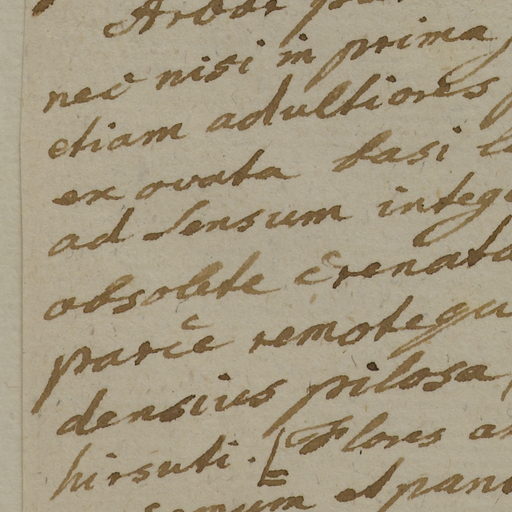 Arbor
nec nisi in prima
etiam adultiores
ex ovata basi
ad sensum integ
obsolete crenata
parcè remotequ
densius pilosa,
hirsuti. [Flores
et pani